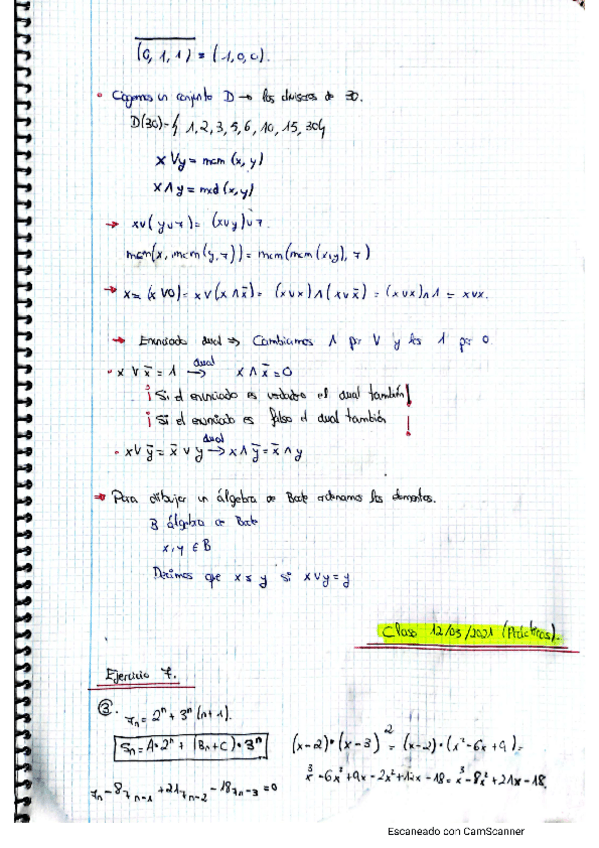 (0, 1, 1) = (1, 0, 0).
• Cogemos un conjunto D → los divisores de 30.
D(30) = { 1, 2, 3, 5, 6, 10, 15, 30}
x ∨ y = mcm (x, y)
x ∧ y = mxd (x, y)
→ x∨(y∨z) = (x∨y)∨z.
mcm(x, mcm(y, z)) = mcm(mcm(x,y), z)
→ x = (x ∨ 0) = x ∨ (x ∧ x̄) = (x∨x) ∧ (x∨x̄) = (x∨x) ∧ 1 = x∨x.
→ Enunciado dual ⇒ Cambiamos ∧ por ∨ y los 1 por 0.
• x ∨ x̄ = 1 dual → x ∧ x̄ = 0
¡ Si el enunciado es verdadero el dual también!
¡ Si el enunciado es falso el dual también !
• x ∨ ȳ = x̄ ∨ y dual → x ∧ ȳ = x̄ ∧ y
→ Para dibujar un álgebra de Boole ordenamos los elementos.
B álgebra de Boole
x, y ∈ B
Decimos que x ≤ y si x ∨ y = y
Clase 12/03/2021 (Prácticas).
Ejercicio 7.
③. zn = 2ⁿ + 3ⁿ (n+1).
Sn = A·2ⁿ + (Bn+C)·3ⁿ
(x-2)·(x-3)² = (x-2)·(x²-6x+9) =
x³-6x²+9x-2x²+12x-18 = x³-8x²+21x-18.
zn - 8zn-1 + 21zn-2 - 18zn-3 = 0
Escaneado con CamScanner